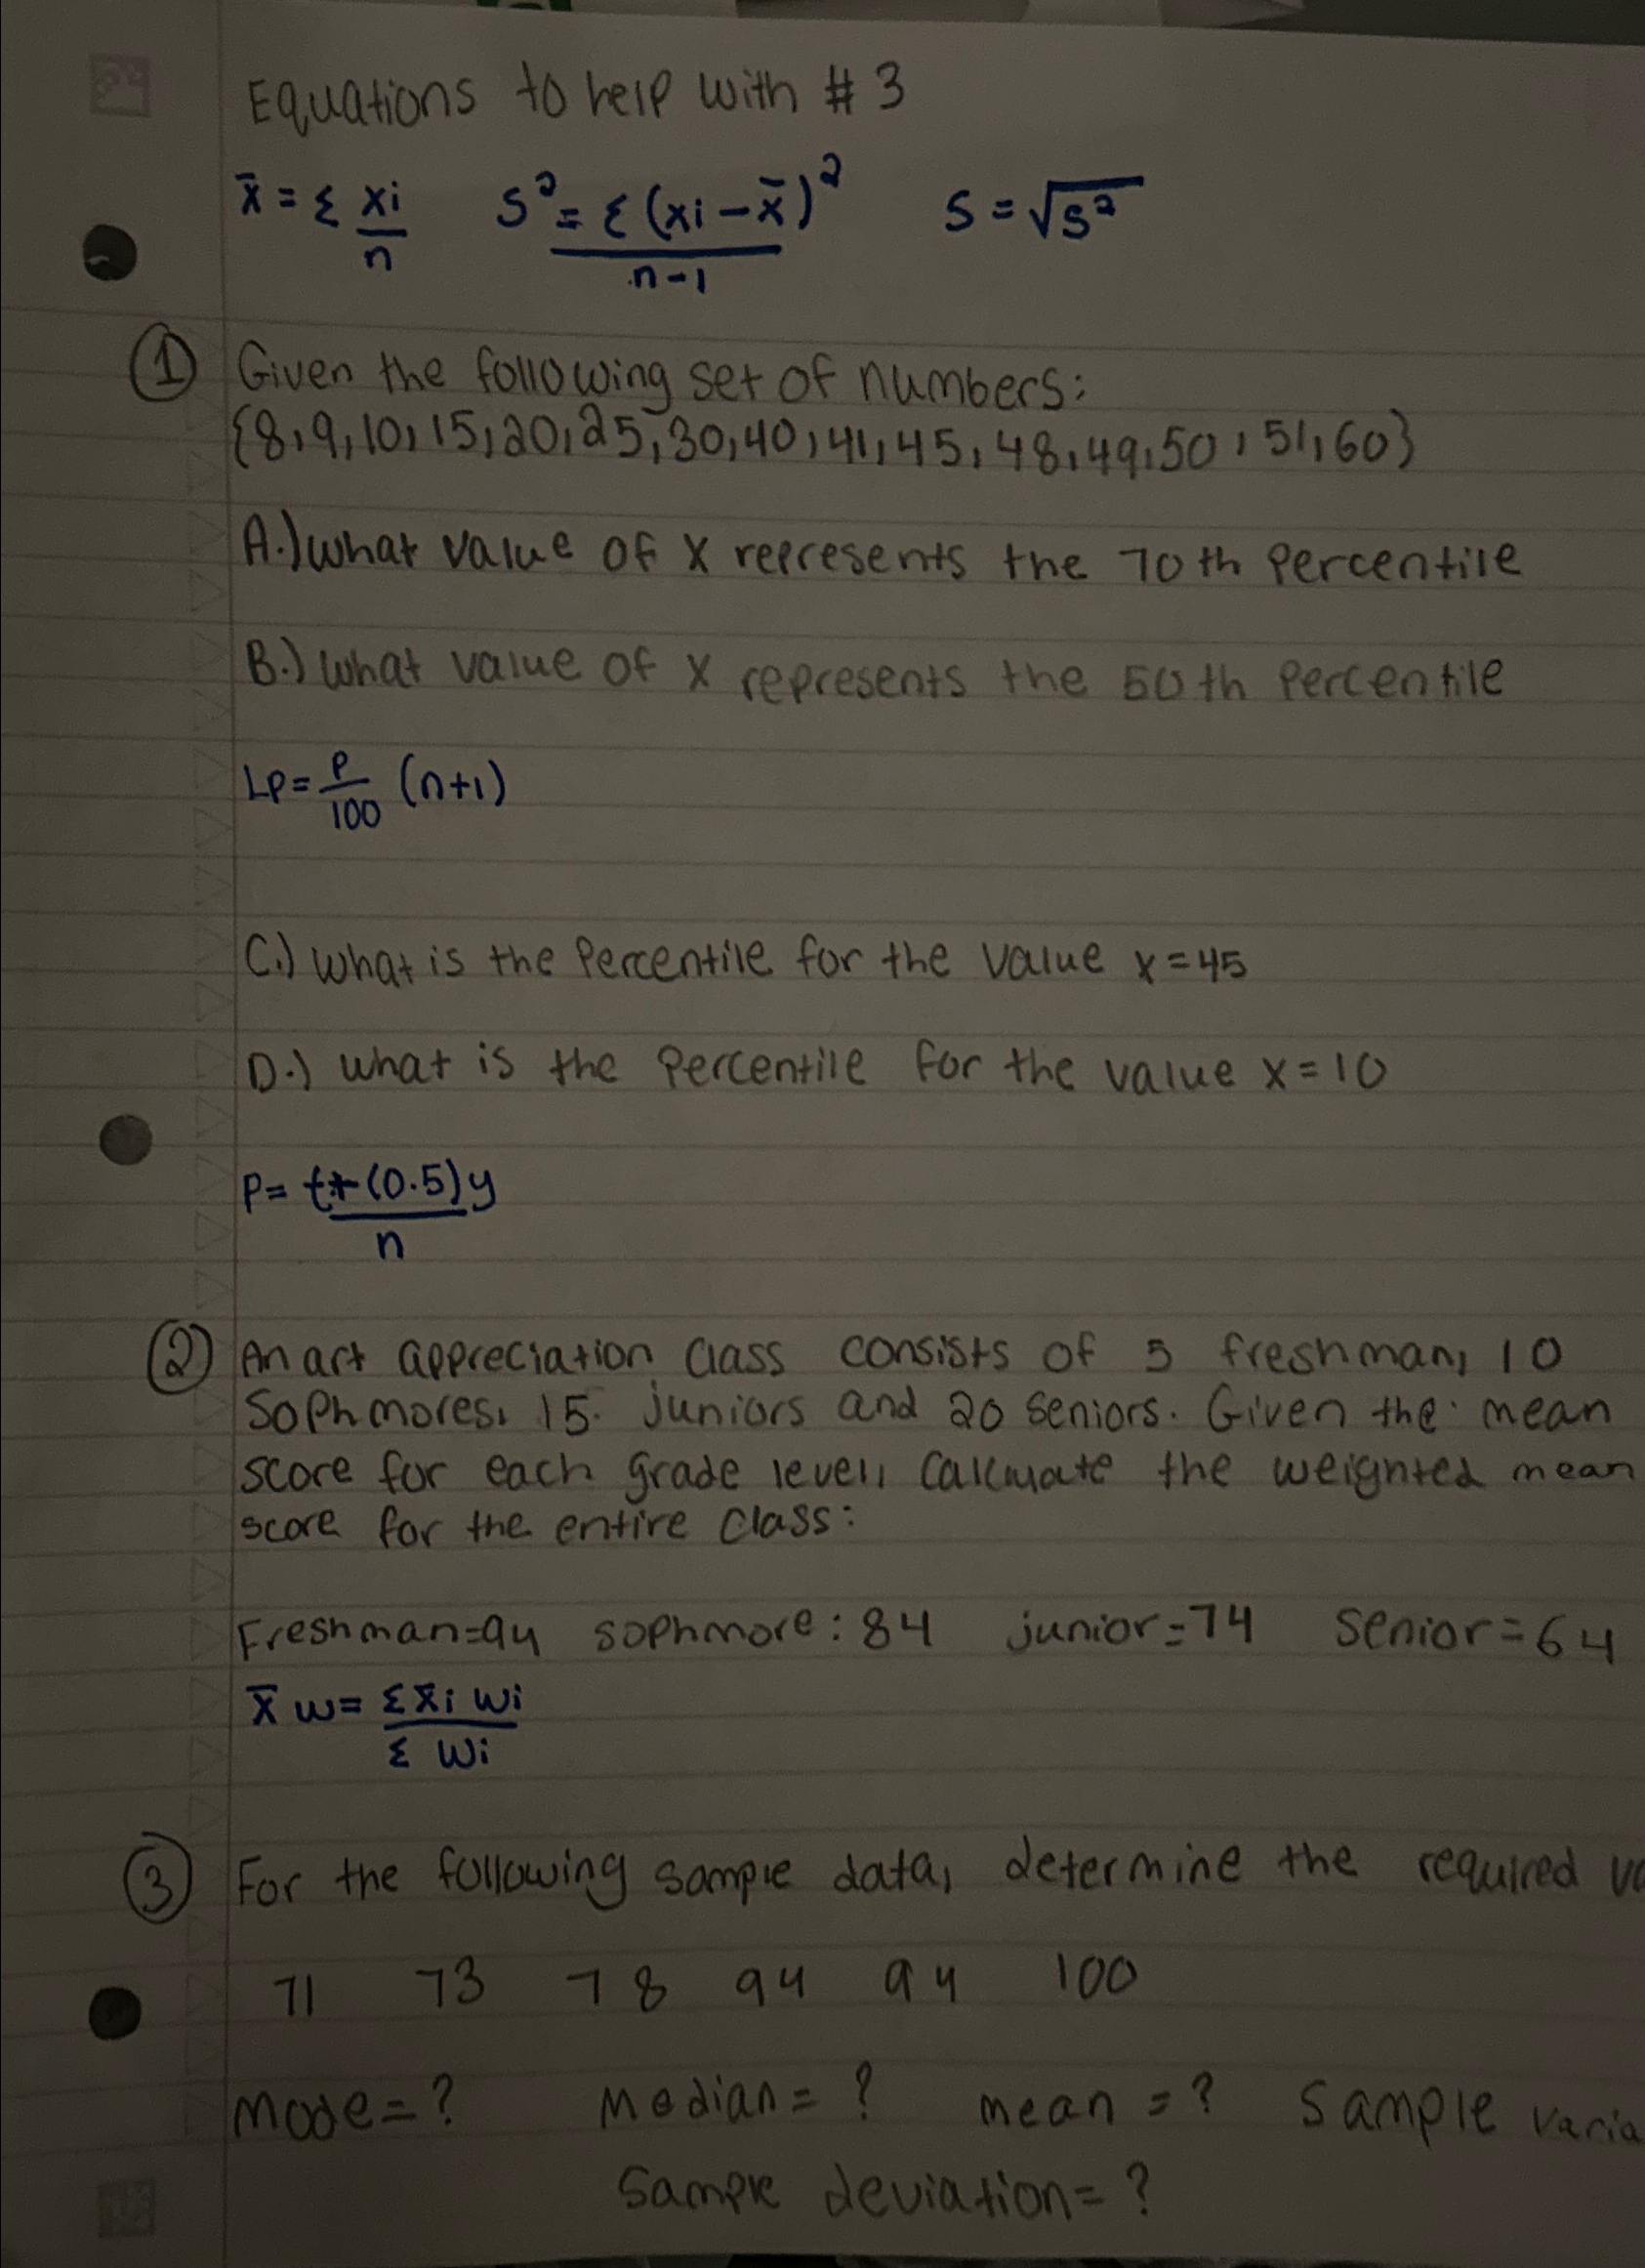 Equations to help with # 3
x̄ = Σ xi/n   S² = Σ(xi - x̄)²/n-1   S = √S²
① Given the following set of numbers:
{8,9,10,15,20,25,30,40,41,45,48,49,50,51,60}
A.) what value of x represents the 70th Percentile
B.) what value of x represents the 50th Percentile
Lp = P/100 (n+1)
C.) What is the Percentile for the value x=45
D.) what is the Percentile for the value x=10
P= t+(0.5)y/n
② An art appreciation class consists of 5 freshman, 10
Sophmores, 15 juniors and 20 seniors. Given the mean
score for each grade level, calculate the weighted mean
score for the entire class:
Freshman=94   sophmore: 84   junior=74   senior=64
x̄w = Σx̄i wi/Σ wi
③ For the following sample data, determine the required
71   73   78   94   94   100
mode=?   Median=?   mean=?   Sample varia
Sample deviation=?